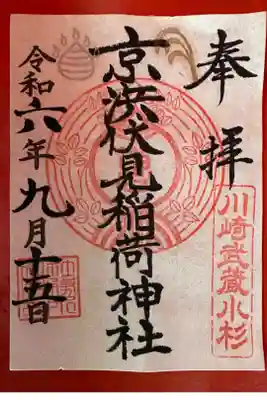 奉拝
川崎武蔵小杉
京浜伏見稲荷神社
令和六年九月十五日